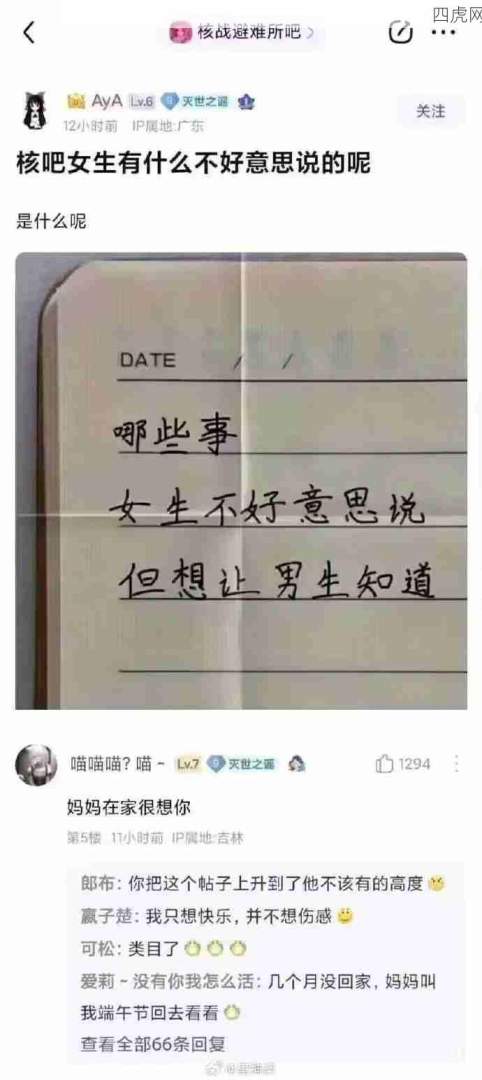 四虎网
核战避难所吧
AyA Lv.6 灭世之谣
12小时前 IP属地:广东
关注
核吧女生有什么不好意思说的呢
是什么呢
DATE / /
哪些事
女生不好意思说
但想让男生知道
喵喵喵? 喵~ Lv.7 灭世之谣
1294
妈妈在家很想你
第5楼 11小时前 IP属地:吉林
郎布: 你把这个帖子上升到了他不该有的高度
嬴子楚: 我只想快乐,并不想伤感
可松: 类目了
爱莉~没有你我怎么活: 几个月没回家,妈妈叫
我端午节回去看看
查看全部66条回复